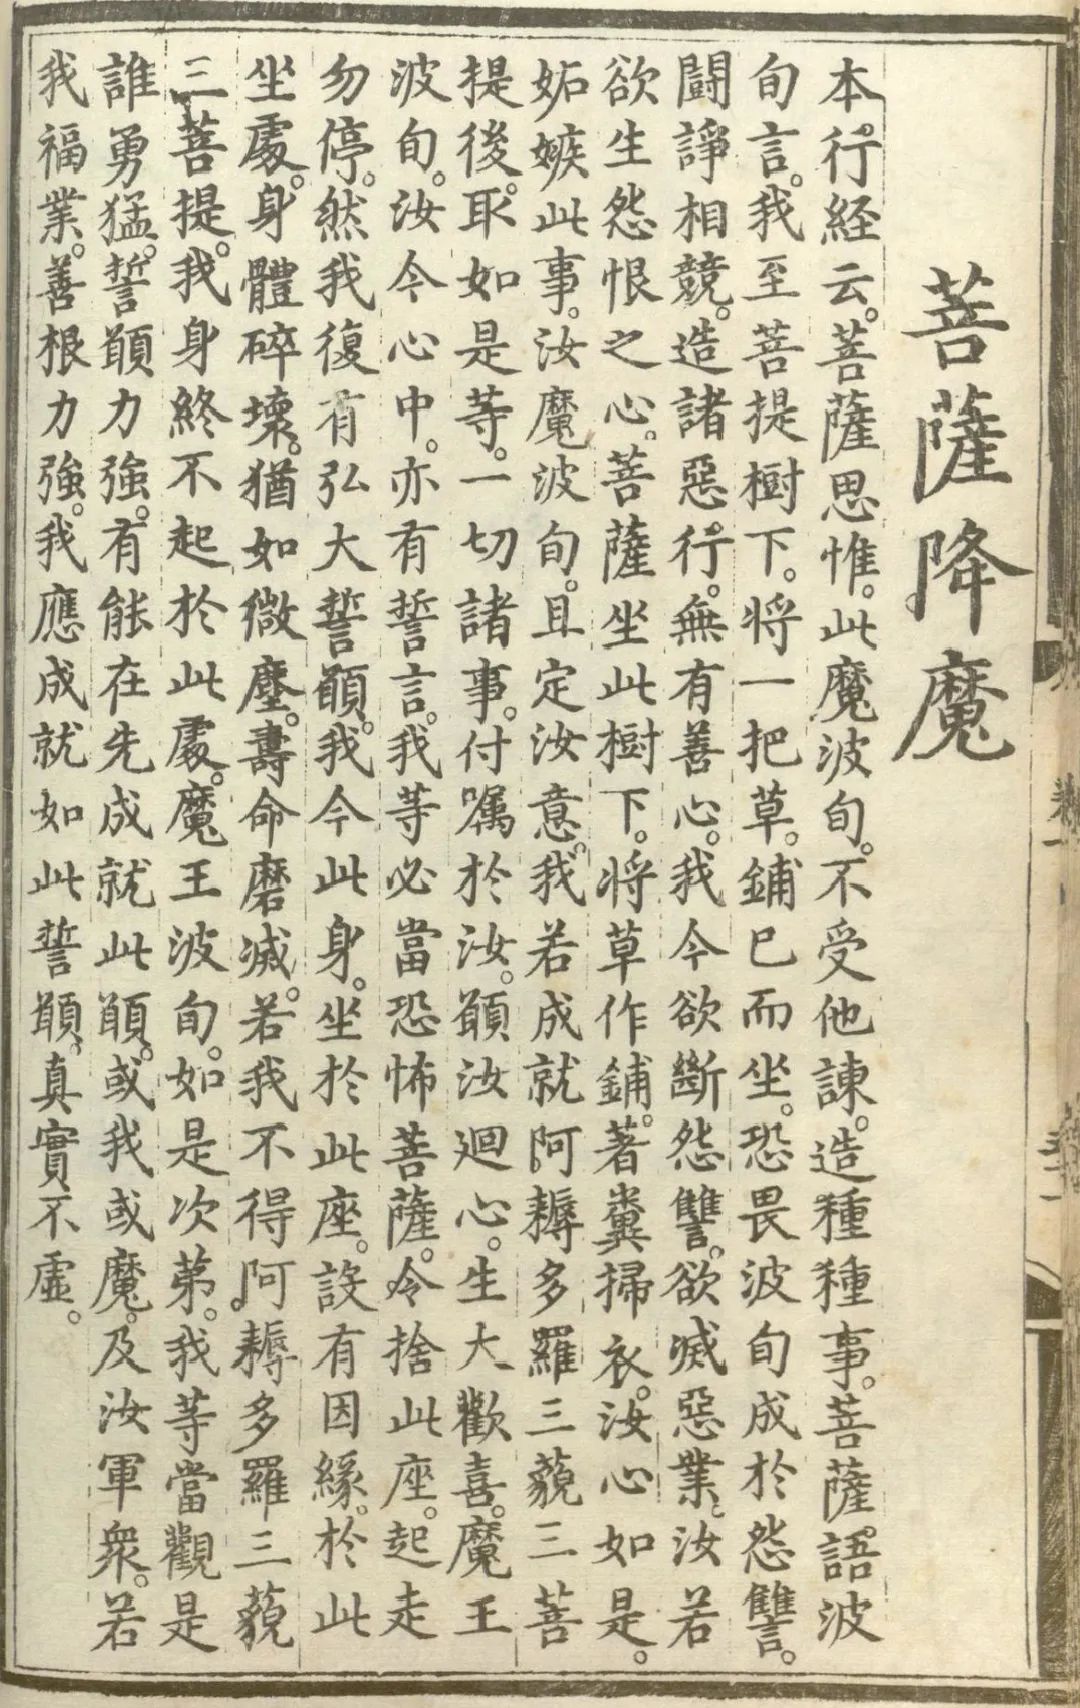 菩薩降魔
本行経云。菩薩思惟。此魔波旬。不受他諫。造種種事。菩薩語波
旬言。我至菩提樹下。将一把草。鋪已而坐。恐畏波旬成於怨讐。
鬪諍相競。造諸惡行。無有善心。我今欲斷怨讐。欲滅惡業。汝若
欲生怨恨之心。菩薩坐此樹下。将草作鋪。著糞掃衣。汝心如是。
妬嫉此事。汝魔波旬。且定汝意。我若成就阿耨多羅三藐三菩
提後。取如是等。一切諸事。付嘱於汝。願汝廻心。生大歡喜。魔王
波旬。汝今心中。亦有誓言。我等必當恐怖菩薩。令捨此座。起走
勿停。然我復有弘大誓願。我今此身。坐於此座。設有因緣。於此
坐處。身體碎壞。猶如微塵。壽命磨滅。若我不得阿耨多羅三藐
三菩提。我身終不起於此處。魔王波旬。如是次第。我等當觀是
誰勇猛。誓願力強。有能在先成就此願。或我或魔。及汝軍衆。若
我福業。善根力強。我應成就如此誓願。真實不虛。